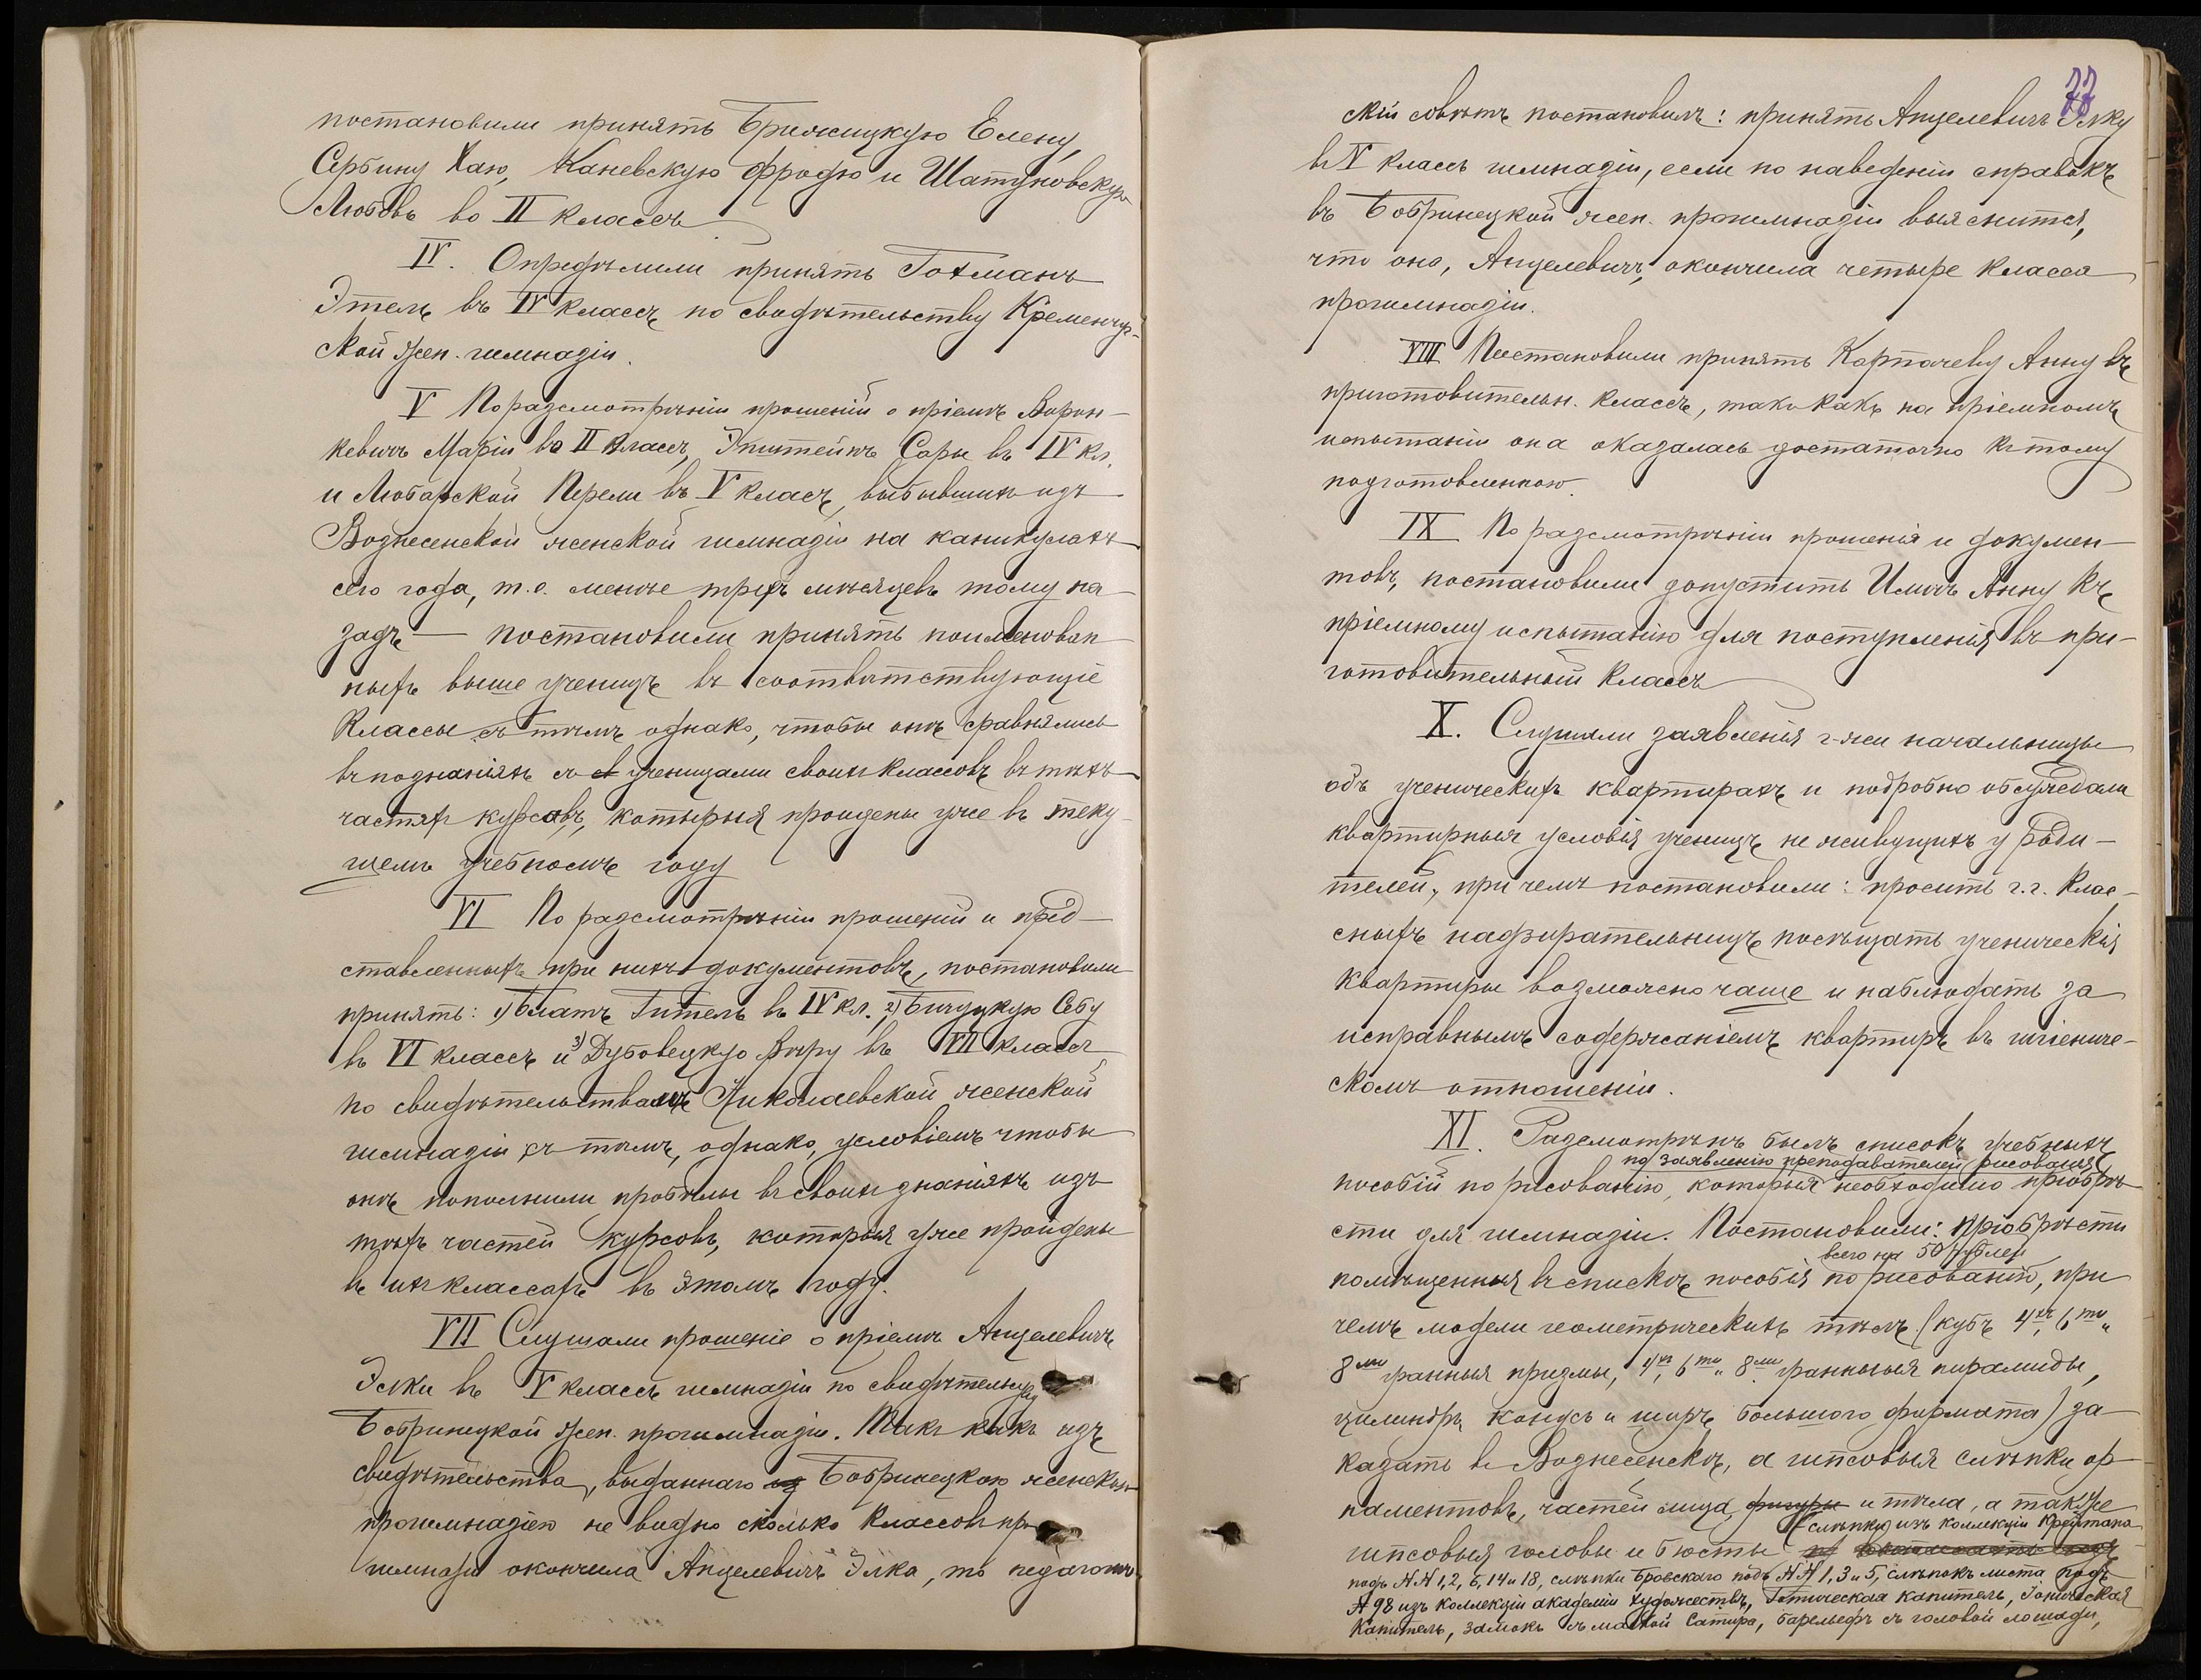 постановили принять Брижицкую Елену,
Сербину Хаю, Каневскую Фродю и Шатуновскую
Любовь во II классъ
IV. Опредѣлили принять Гохманъ
Этель въ IV классъ по свидѣтельству Кременчуг-
ской жен. гимназіи.
V По разсмотрѣніи прошеній о пріемѣ Ворон-
кевичъ Маріи во II классъ, Эпштейнъ Соры въ IV кл.
и Любарской Перели въ V классъ, выбывшихъ изъ
Вознесенской женской гимназіи на каникулахъ
сего года, т.е. менѣе трехъ мѣсяцевъ тому на
задъ — постановили принять поименован
ныхъ выше ученицъ въ соотвѣтствующіе
классы съ тѣмъ однако, чтобы онѣ сравнялись
въ познаніяхъ съ ученицами своихъ классовъ въ тѣхъ
частяхъ курсовъ, которыя пройдены уже въ теку
щемъ учебномъ году
VI По разсмотрѣніи прошеній и пред-
ставленныхъ при нихъ документовъ, постановили
принять: 1) Блатъ Гитель въ IV кл. 2) Бичуцкую Себу
въ VI классъ и 3) Дубовецкую Вѣру въ VII классъ
по свидѣтельствамъ Николаевской женской
гимназіи съ тѣмъ, однако, условіемъ чтобы
онѣ пополнили пробѣлы въ своихъ знаніяхъ изъ
тѣхъ частей курсовъ, которыя уже пройдены
въ ихъ классахъ въ этомъ году.
VII Слушали прошеніе о пріемѣ Анцелевичъ
Элки въ V классъ гимназіи по свидѣтельству
Бобринецкой жен. прогимназіи. Такъ какъ изъ
свидѣтельства, выданнаго Бобринецкою женскою
прогимназіею не видно сколько классовъ про
гимназіи окончила Анцелевичъ Элка, то педагогиче
77
скій совѣтъ постановилъ: принять Анцелевичъ Элку
въ V классъ гимназіи, если по наведеніи справокъ
въ Бобринецкой жен. прогимназіи выяснится,
что она, Анцелевичъ, окончила четыре класса
прогимназіи.
VIII Постановили принять Карпачеву Анну въ
приготовительн. классъ, такъ какъ на пріемномъ
испытаніи она оказалась достаточно къ тому
подготовленною.
IX По разсмотрѣніи прошенія и докумен-
товъ, постановили допустить Иличъ Анну къ
пріемному испытанію для поступленія въ при-
готовительный классъ
X. Слушали заявленія г-жи начальницы
объ ученическихъ квартирахъ и подробно обсуждали
квартирныя условія ученицъ не живущихъ у роди-
телей, при чемъ постановили: просить г.г. клас-
сныхъ надзирательницъ посѣщать ученическія
квартиры возможно чаще и наблюдать за
исправнымъ содержаніемъ квартиръ въ гигіениче-
скомъ отношеніи.
XI. Разсмотрѣнъ былъ списокъ учебныхъ
по заявленію преподавателей рисованія
пособій по рисованію, которыя необходимо пріобрѣ
сти для гимназіи. Постановили: пріобрѣсти
всего на 50 рублей
помѣщенныя въ спискѣ пособія по рисованію, при
чемъ модели геометрическихъ тѣлъ (кубъ 4хъ, 6ти и
8ми гранныя призмы, 4хъ, 6ти и 8ми гранныя пирамиды,
цилиндръ, конусъ и шаръ большого формата) за-
казать въ Вознесенскѣ, а гипсовыя слѣпки ор
наментовъ, частей лица, фигуры и тѣла, а также
(слѣпки) изъ коллекціи Крейтана
гипсовыя головы и бюсты
подъ №№ 1, 2, 6, 14 и 18, слѣпки Бровскаго подъ №№ 1, 3 и 5, слѣпокъ листа подъ
№ 98 изъ коллекціи академіи художествъ, Готическая капитель, Іоническая
капитель, замокъ съ маской Сатира, барельефъ съ головой лошади,